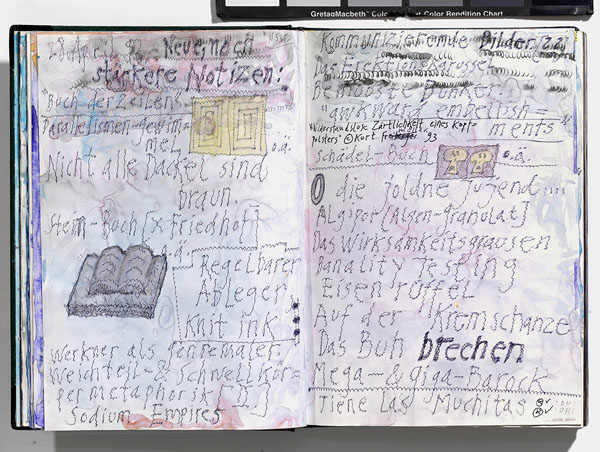 GretagMacbeth™ Color Rendition Chart
28 April
Neue, noch
stärkere Notizen:
Buch der Zeilen-
Parallelismen-gewim=
mel,
o.ä.
Nicht alle Dackel sind
braun.
Stein-Buch [x Friedhof]
o.ä.
Regelbarer
Ableger
Knit ink
Werkner als Genremaler.
Weichteil- & Schwellkör-
permetaphorik [II]
Sodium Empires
Kommunizierende Bilder
Das
Bemooste Bücher
"awkward embelish=
ments
Widerstandslose Zärtlichkeit eines Kopf=
polsters @ Kurt
93
Schädel-Buch
o.ä.
O die joldne Jujend....
Algipor [Algen-granulat]
Das Wirksamkeitsgrausen
Banality Testing
Eisen
Auf der Kremschanze
Das Buh brechen
Mega- & giga-Barock
Tiene Las Muchitas